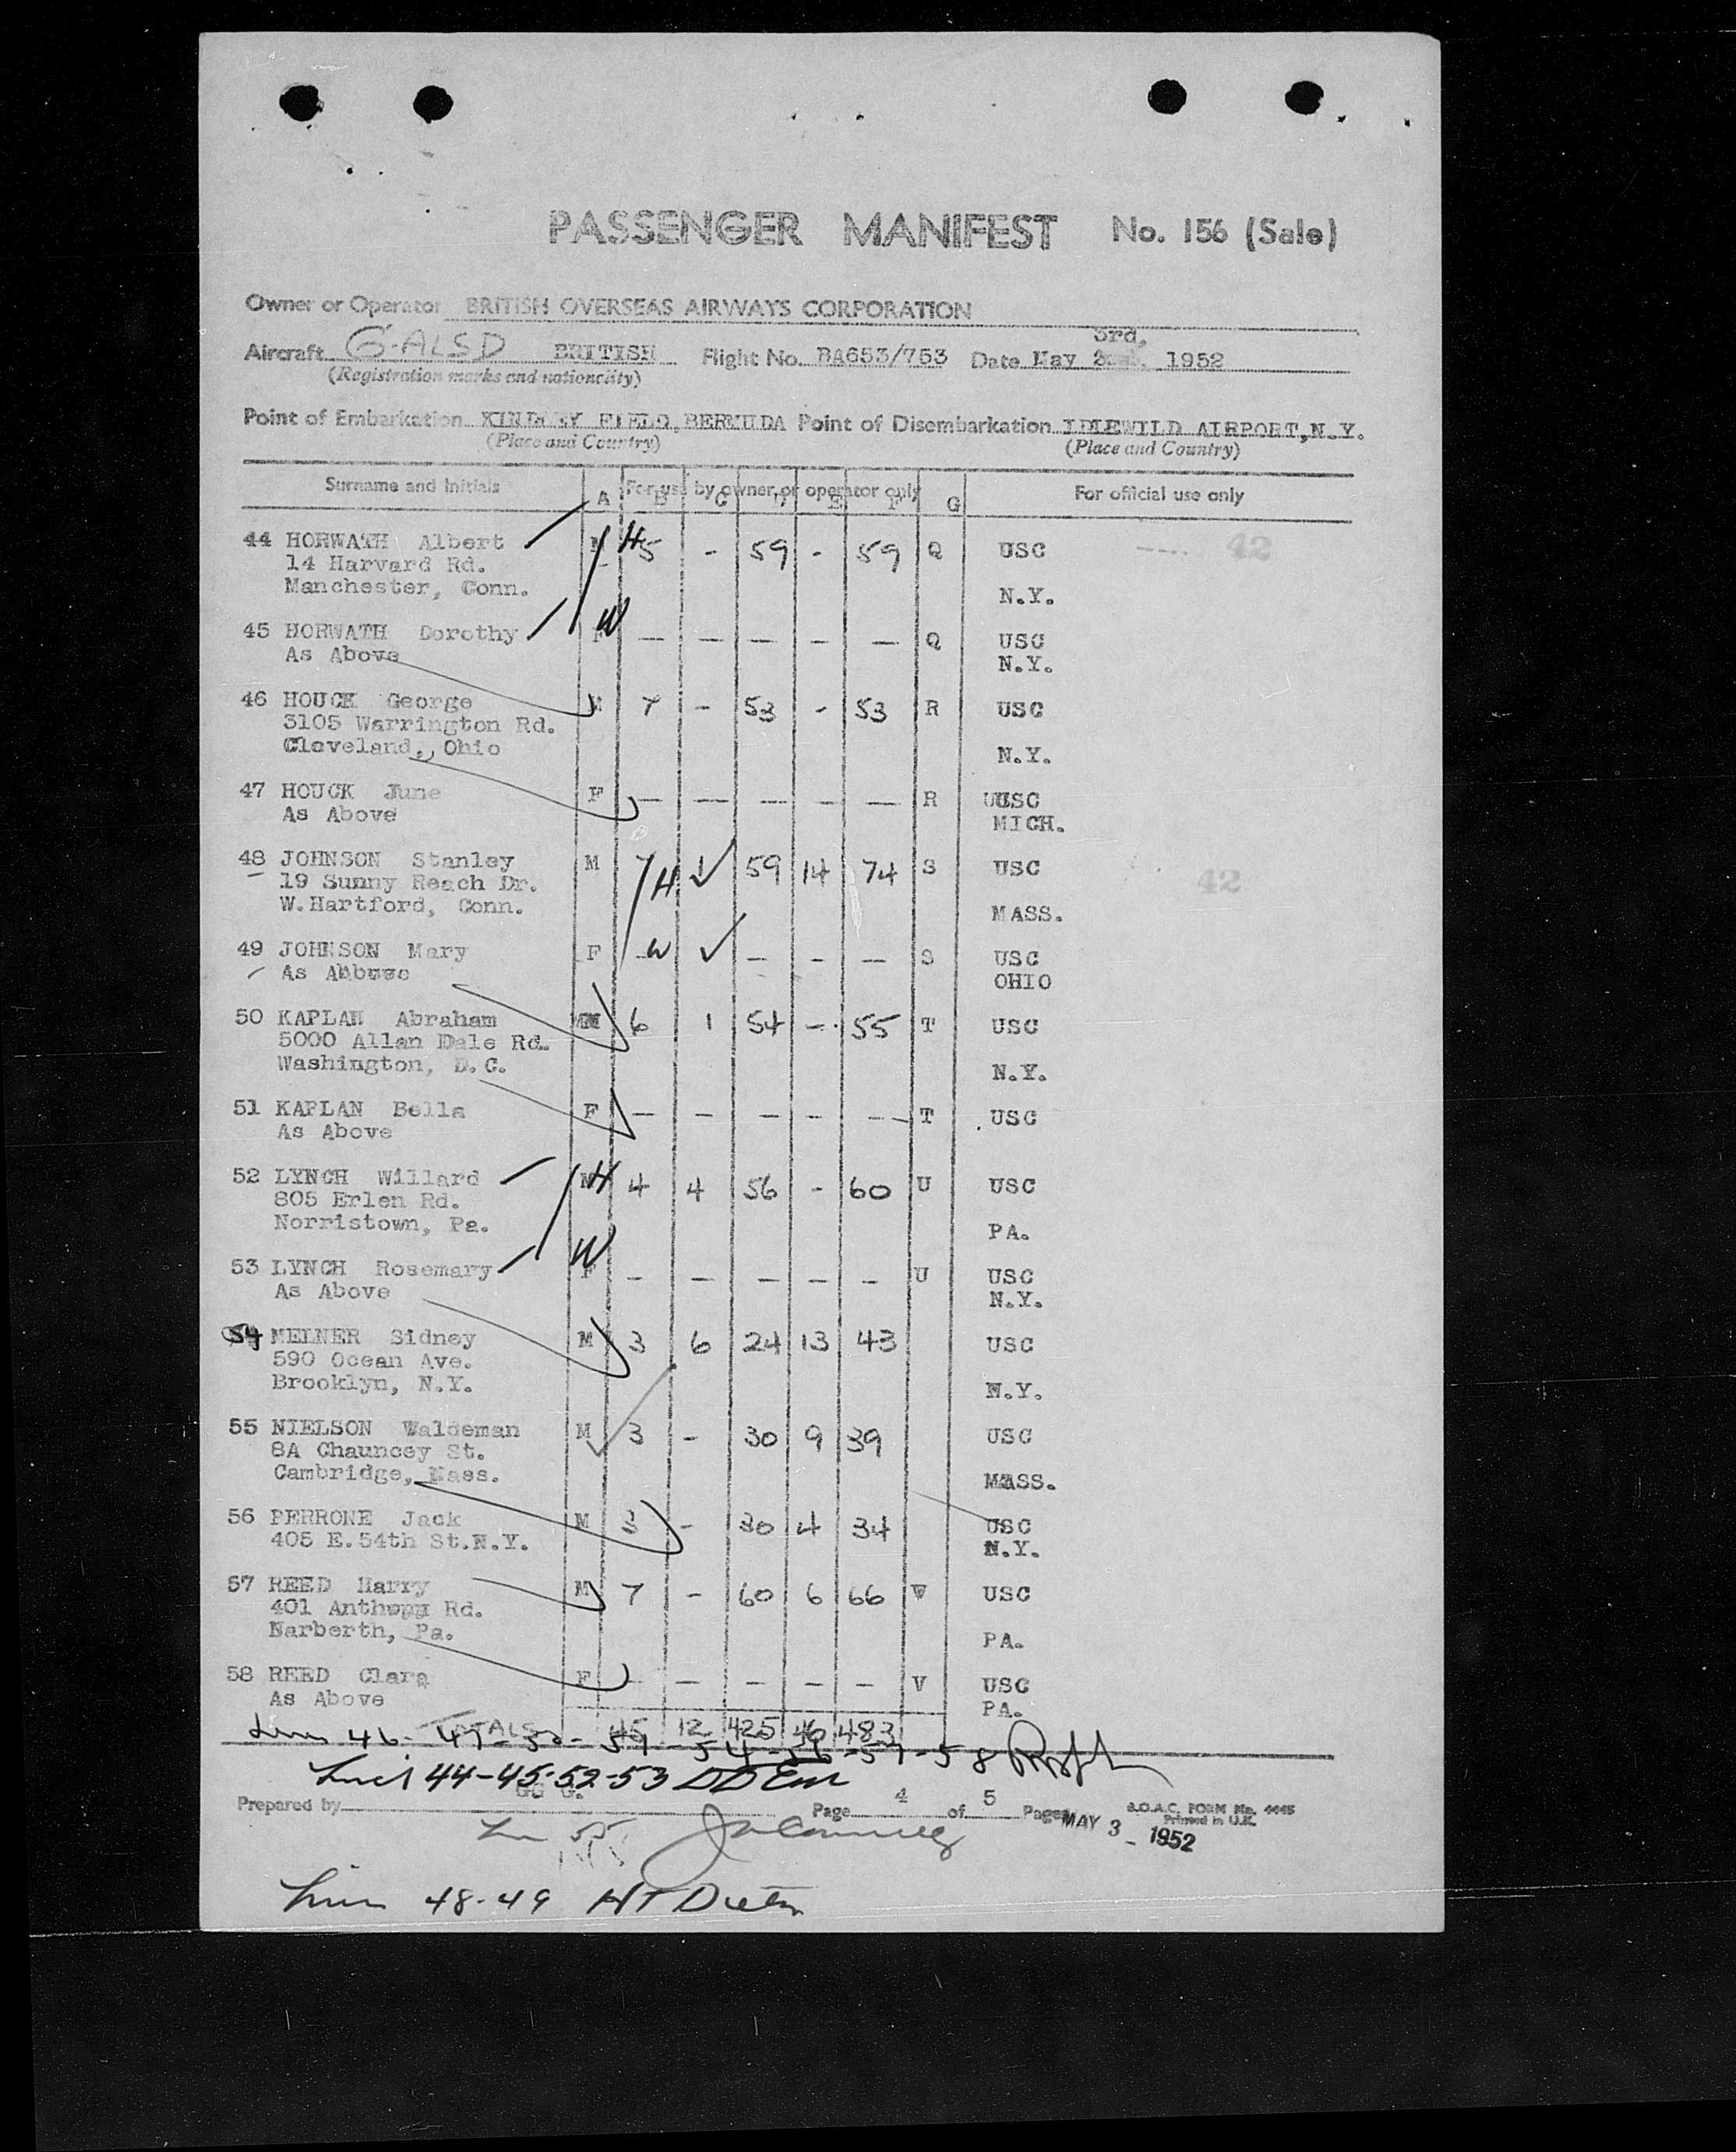 PASSENGER MANIFEST No. 156 (Sale)
Owner or Operator BRITISH OVERSEAS AIRWAYS CORPORATION
3rd,
Aircraft G-ALSD BRITISH Flight No. BA653/753 Date May 1952
(Registration marks and nationality)
Point of Embarkation KINDLEY FIELD, BERMUDA Point of Disembarkation IDLEWILD AIRPORT, N.Y.
(Place and Country) (Place and Country)
Surname and Initials For use by owner or operator only For official use only
A B C D E F G
44 HORWATH Albert M H 5 - 59 - 59 Q USC 42
14 Harvard Rd.
Manchester, Conn. N.Y.
W
45 HORWATH Dorothy F — — — — — Q USC
As Above N.Y.
46 HOUCK George M 7 - 53 - 53 R USC
3105 Warrington Rd.
Cleveland, Ohio N.Y.
47 HOUCK June F — — — — — R USC
As Above MICH.
48 JOHNSON Stanley M 7 H 1 59 14 74 S USC 42
19 Sunny Reach Dr.
W.Hartford, Conn. MASS.
49 JOHNSON Mary F W - - - S USC
As OHIO
50 KAPLAN Abraham M 6 1 54 - 55 T USC
5000 Allan Dale Rd.
Washington, D.C. N.Y.
51 KAPLAN Bella F - - - - - T USC
As Above
52 LYNCH Willard M H 4 4 56 - 60 U USC
805 Erlen Rd.
Norristown, Pa. PA.
W
53 LYNCH Rosemary F - - - - - U USC
As Above N.Y.
54 MELNER Sidney M 3 6 24 13 43 USC
590 Ocean Ave.
Brooklyn, N.Y. N.Y.
55 NIELSON Waldeman M 3 - 30 9 39 USC
8A Chauncey St.
Cambridge, Mass. MASS.
56 PERRONE Jack M 3 - 30 4 34 USC
405 E.54th St.N.Y. N.Y.
57 REED Harry M 7 - 60 6 66 V USC
401 Anthony Rd.
Narberth, Pa. PA.
58 REED Clara F - - - - - V USC
As Above PA.
TOTALS 45 12 425 46 483
46 - 47 - 54 - 56 - 57 - 58
44-45-52-53
GG G.
Prepared by Page 4 of 5 Pages B.O.A.C. FORM No. 4445
Printed in U.K.
MAY 3 - 1952
55
48-49